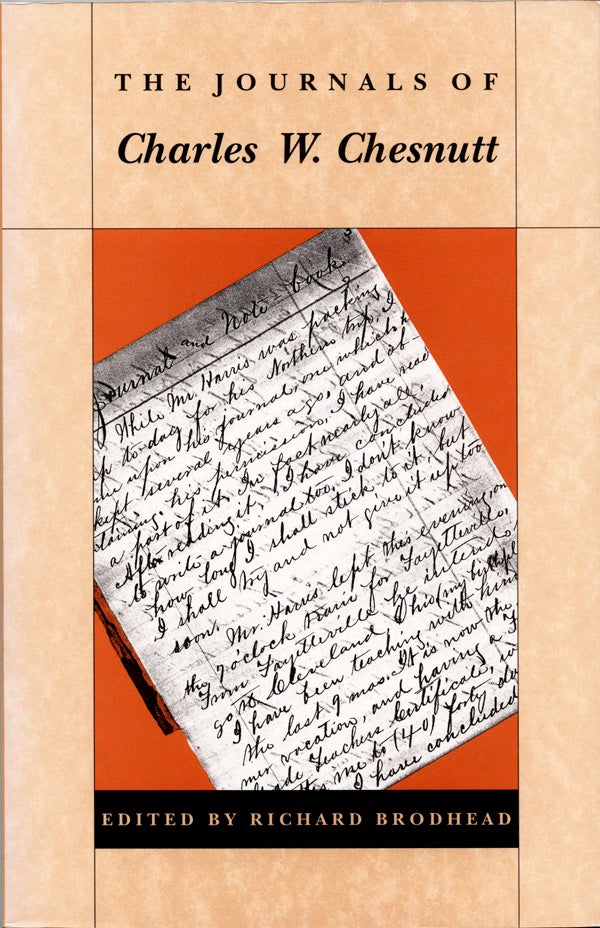 THE JOURNALS OF
Charles W. Chesnutt
Journal and Note-book.
While Mr. Harris was packing
up to-day for his Northern trip, I
me upon his journal, one which h
kept several years ago, and ob-
taining his permission, I have read
a part of it. In fact nearly all.
After reading it, I have concluded
to write a journal too. I don't know
how long I shall stick to it, but
I shall try and not give it up too
soon.
Mr. Harris left this evening on
the 7 o'clock train for Fayetteville.
From Fayetteville he intends
go to Cleveland Ohio (my birthpl
I have been teaching with him
the last 9 mos. It is now the
mer vacation, and having a
ade Teachers Certificate,
me to (40) forty do
I have concluded
EDITED BY RICHARD BRODHEAD